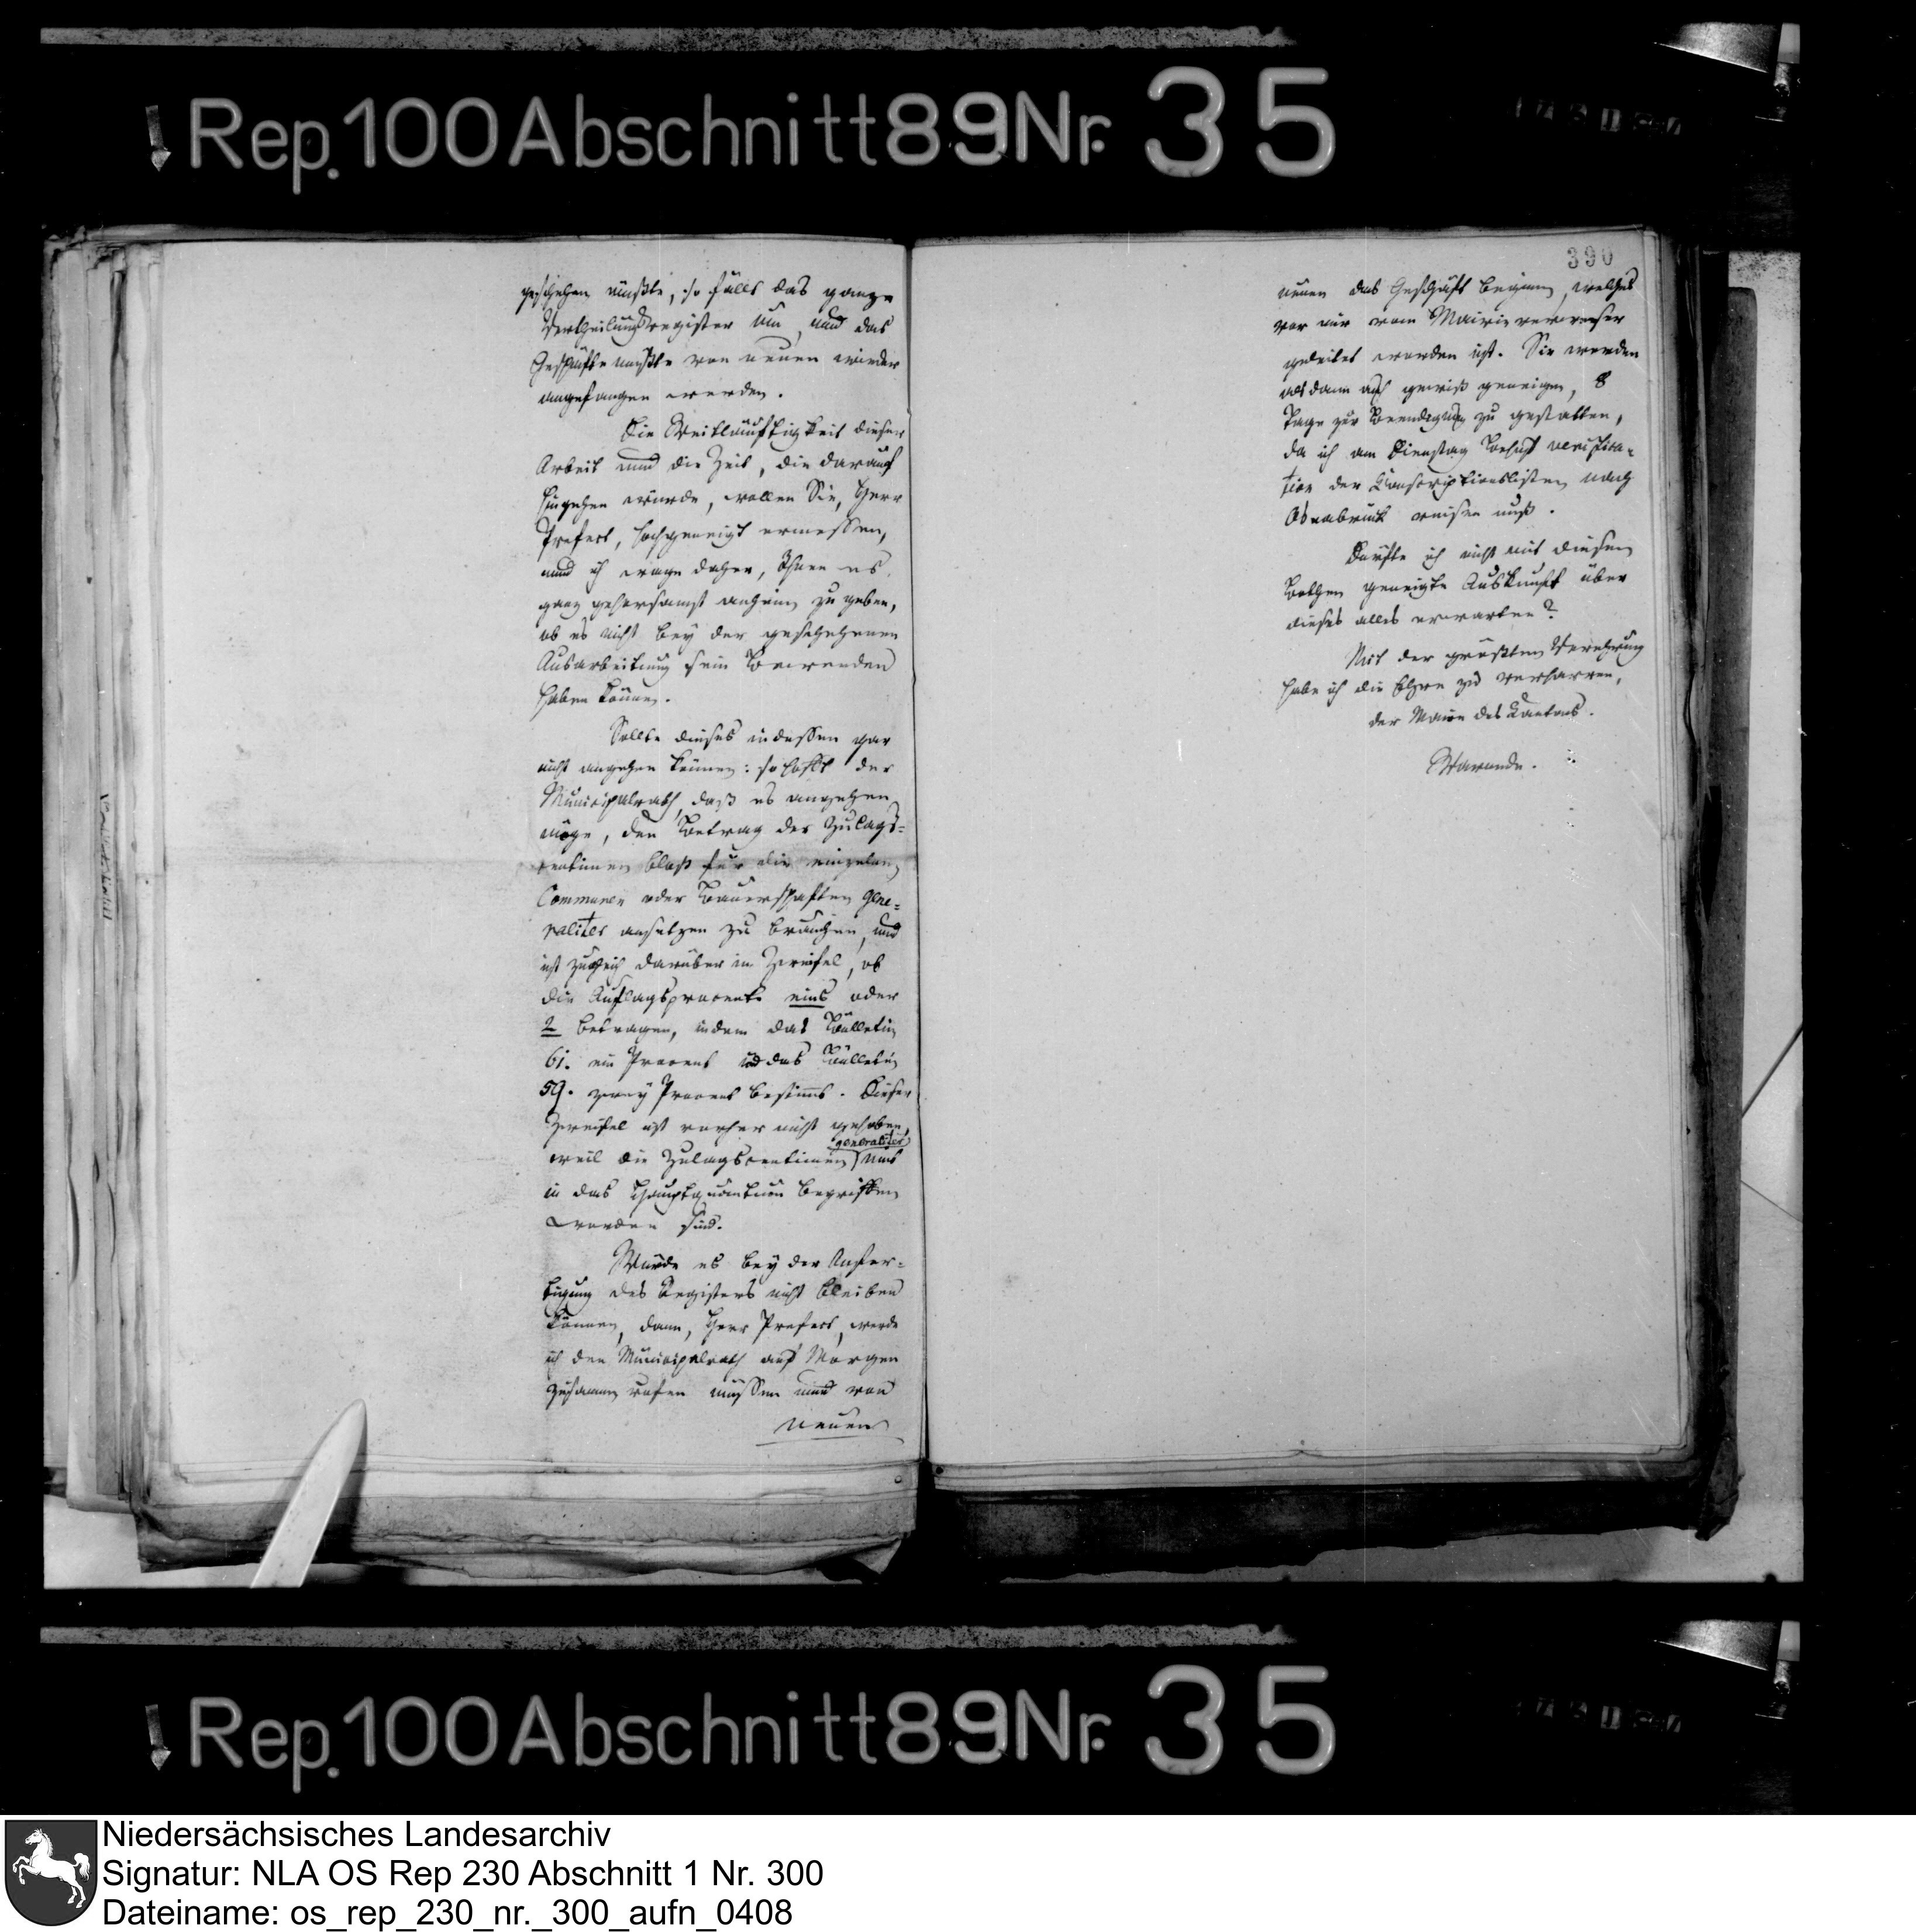 Rep. 100 Abschnitt 89 Nr. 35
geschehen müßte, so fällt das ganze
Vertheilungsregister um, und das
Geschäfte müßte von neuen wieder
angefangen werden.
Die Weitläuftigkeit dieser
Arbeit und die Zeit, die darauf
hingehen würde, wollen Sie, Herr
Prefect, hochgeneigt ermessen,
und ich wage daher, Ihnen es
ganz gehorsamst anheim zu geben,
ob es nicht bey der geschehenen
Ausarbeitung sein Bewenden
haben könne.
Sollte dieses indessen gar
nicht angehen können: so hofft der
Municipalrath, daß es angehen
möge, den Betrag der Zulags-
centimen bloß für die einzelnen
Communen oder Bauerschaften gene-
raliter ansetzen zu brauchen, und
ist zugleich darüber in Zweifel, ob
die Auflagsprocente eins oder
2 betragen, indem das Bülletin
61. ein Procent und das Bülletin
59. zwey Procent bestimt. Dieser
Zweifel ist vorher nicht gehoben,
generaliter
weil die Zulagscentimen mit
in das Hauptquantum begriffen
worden sind.
Würde es bey der Anfer-
tigung des Registers nicht bleiben
können, dann, Herr Prefect, werde
ich den Municipalrath auf Morgen
zusammen rufen müssen und von
neuen
390
neuen das Geschäft beginnen, welches
vor mir vom Mairieverweser
geleitet worden ist. Sie werden
alsdann auch gewiß geneigen, 8
Tage zur Beendigung zu gestatten,
da ich am Dienstag Behuf verifica-
tion der Conscriptionslisten nach
Osnabrück reisen muß.
Dürfte ich nicht mit diesem
Bothen geneigte Auskunft über
dieses alles erwarten?
Mit der größten Verehrung
habe ich die Ehre zu verharren,
der Maire des Kantons.
Rep. 100 Abschnitt 89 Nr. 35
Niedersächsisches Landesarchiv
Signatur: NLA OS Rep 230 Abschnitt 1 Nr. 300
Dateiname: os_rep_230_nr._300_aufn_0408